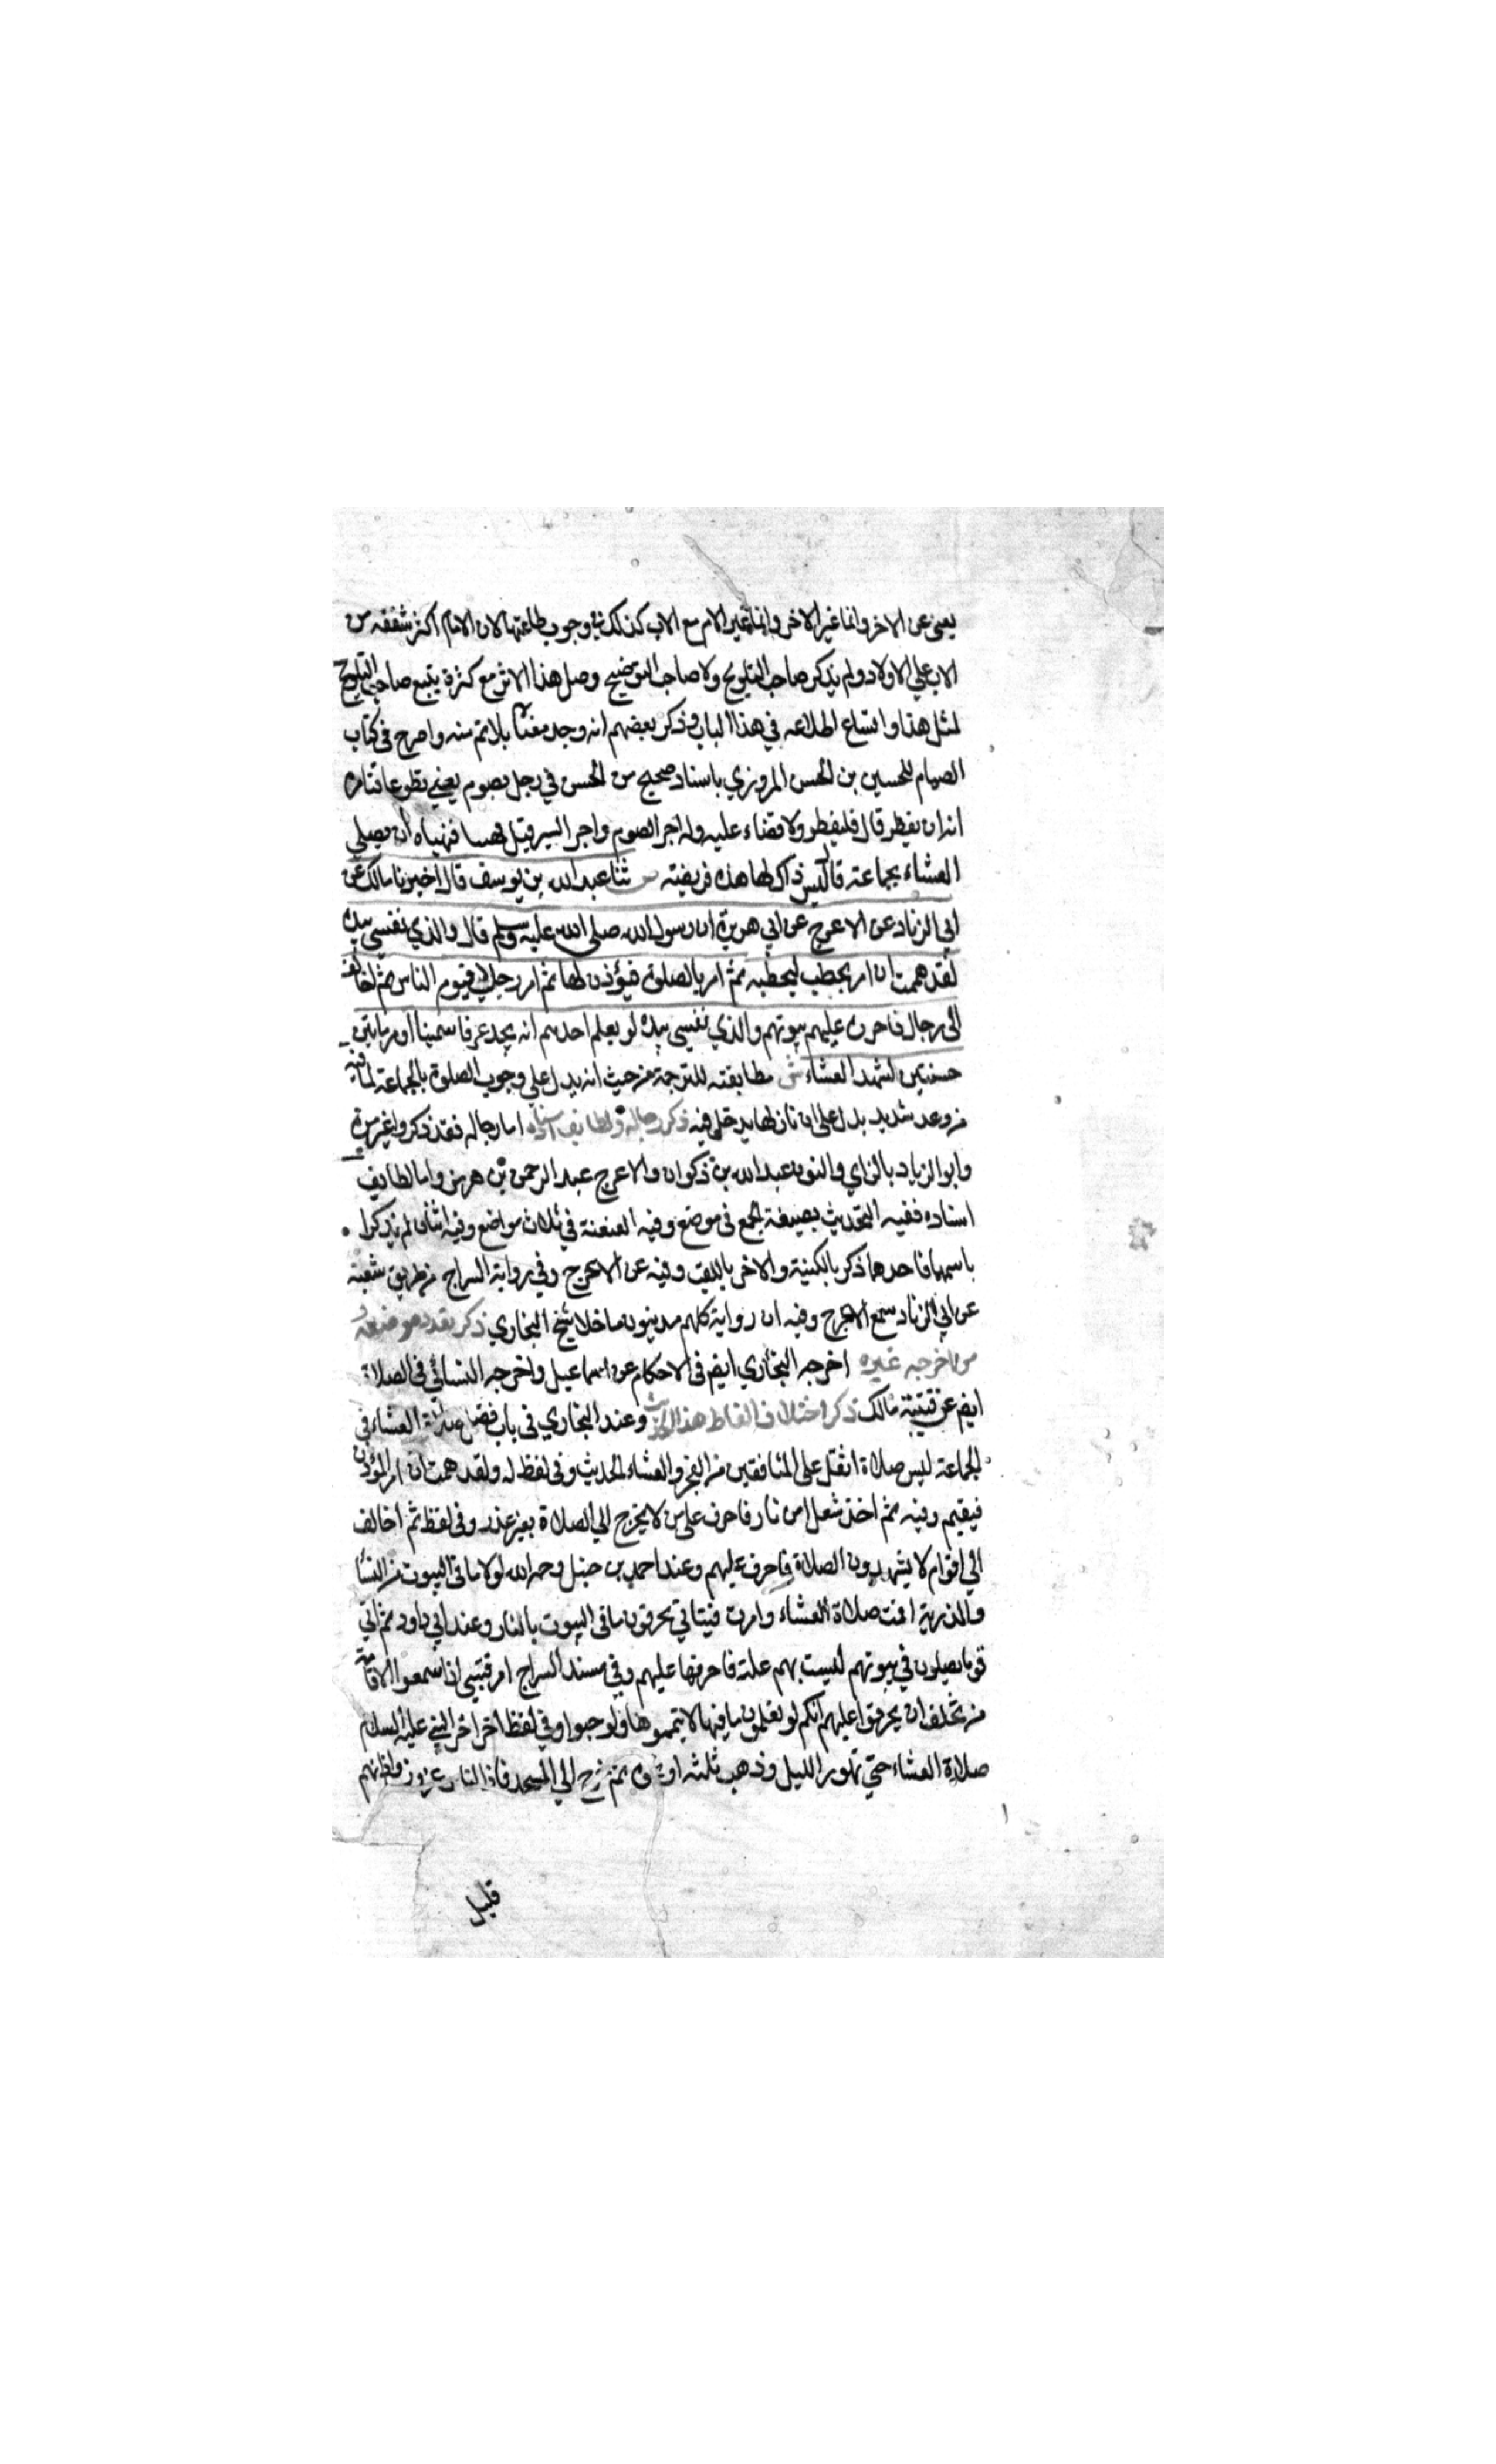 يعني عن الاخر وانما غير الاخر وانما عين الام مع الاب كذلك في وجوب طاعتهما لان الام اكثر شفقه من
الاب علي الاولاد ولم يذكر صاحب التلويح ولا صاحب التوضيح وصل هذا الاثر مع كثرة تتبع صاحب التلويح
لمثل هذا واتساع اطلاعه في هذا الباب وذكر بعضهم انه وجد معناه بل اتم منه واصرح في كتاب
الصيام للحسين بن الحسن المروزي باسناد صحيح من الحسن في رجل يصوم يعني تطوعا فتامره
امه ان يفطر قال فليفطر ولا قضاء عليه وله اجر الصوم واجر البر قيل فتنهاه ان يصلي
العشاء بجماعة قال ليس ذاك لها هذه فريضة ص ثنا عبد الله بن يوسف قال اخبرنا مالك عن
ابي الزناد عن الاعرج عن ابي هريرة ان رسول الله صلى الله عليه وسلم قال والذي نفسي بيده
لقد هممت ان امر بحطب ليحطب ثم امر بالصلوة فيؤذن لها ثم امر رجلا فيؤم الناس ثم اخالف
الى رجال فاحرق عليهم بيوتهم والذي نفسي بيده لو يعلم احدهم انه يجد عرقا سمينا او مرماتين
حسنتين لشهد العشاء ش مطابقته للترجمة من حيث انه يدل علي وجوب الصلوة بالجماعة لما فيه
من وعيد شديد يدل على ان تاركها يدخل فيه ذكر رجاله ولطايف اسناده اما رجاله فقد ذكروا غير مرة
وابو الزناد بالزاي والنون عبد الله بن ذكوان والاعرج عبد الرحمن بن هرمز واما لطايف
اسناده ففيه التحديث بصيغة الجمع في موضع وفيه العنعنة في ثلاث مواضع وفيه اثنان لم يذكرا
باسمهما فاحدهما ذكر بالكنية والاخر باللقب وفيه عن الاعرج وفي رواية السراج من طريق شعبة
عن ابي الزناد سمع الاعرج وفيه ان رواية كلهم مدينون ماخلا شيخ البخاري ذكر تعدد موضعه و
من اخرجه غيره اخرجه البخاري ايضم في الاحكام عن اسماعيل واخرجه النسائي في الصلاة
ايضم عن قتيبة مالك ذكر اختلاف الفاظ هذا الحديث وعند البخاري في باب فضل صلاة العشاء في
الجماعة ليس صلاة اثقل على المنافقين من الفجر والعشاء الحديث وفي لفظ له ولقد هممت ان امر المؤذن
فيقيم وفيه ثم اخذ شعلا من نار فاحرق على من لا يخرج الي الصلاة بغير عذر وفي لفظ ثم اخالف
الي اقوام لا يشهدون الصلاة فاحرق عليهم وعند احمد بن حنبل رحمه الله لولا ما في البيوت من النسا
والذرية اقمت صلاة العشاء وامرت فتياني يحرقون ما في البيوت بالنار وعند ابي داود ثم اتي
قوما يصلون في بيوتهم ليست بهم علة فاحرقها عليهم وفي مسند السراج امر فتيتي اذا سمعوا الاقامة
من تخلف ان يحرقوا عليهم انكم لو تعلمون ما فيها لاتيتموها ولو حبوا وفي لفظ اخر اخر النبي عليه السلام
صلاة العشاء حتي تهور الليل وذهب ثلثه او نحوه ثم خرج الي المسجد فاذا الناس عزون واذا هم
قليل